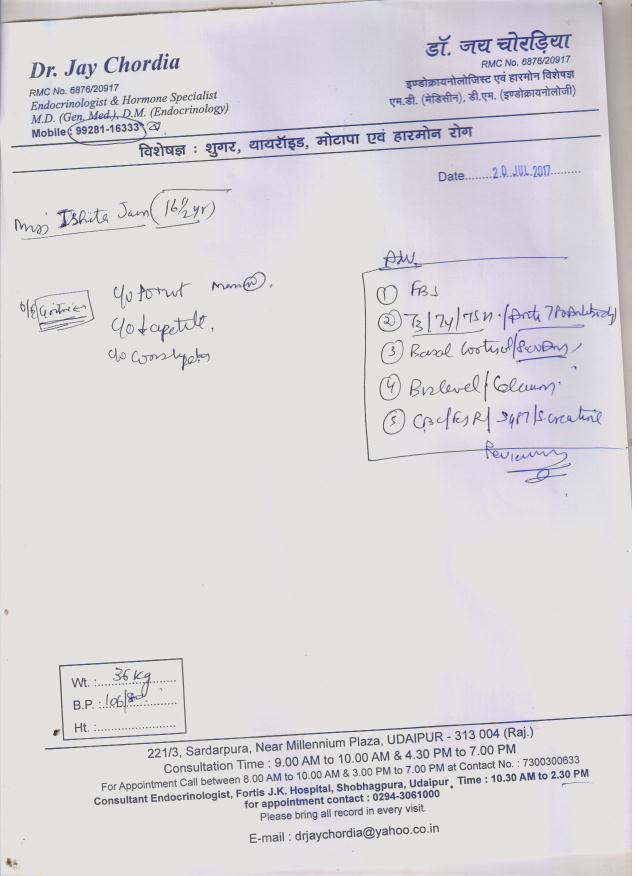 Dr. Jay Chordia
RMC No. 6876/20917
Endocrinologist & Hormone Specialist
M.D. (Gen. Med.), D.M. (Endocrinology)
Mobile : 99281-16333
डॉ. जय चोरड़िया
RMC No. 6876/20917
इण्डोक्रायनोलोजिस्ट एवं हारमोन विशेषज्ञ
एम.डी. (मेडिसीन), डी.एम. (इण्डोक्रायनोलॉजी)
विशेषज्ञ : शुगर, थायरॉइड, मोटापा एवं हारमोन रोग
Date........20 JUL 2017..........
Miss Ishita Jain (16 1/2 yr)
c/o
c/o
c/o
① FBS
② T3/T4/TSH/Anti TPO Antibody
③ Basal Cortisol/
④ B12 level/Calcium
⑤ CBC/ESR/SGPT/S.creatine
Wt. : 36 kg
B.P. : 106/80
Ht. :......................
221/3, Sardarpura, Near Millennium Plaza, UDAIPUR - 313 004 (Raj.)
Consultation Time : 9.00 AM to 10.00 AM & 4.30 PM to 7.00 PM
For Appointment Call between 8.00 AM to 10.00 AM & 3.00 PM to 7.00 PM at Contact No. : 7300300633
Consultant Endocrinologist, Fortis J.K. Hospital, Shobhagpura, Udaipur, Time : 10.30 AM to 2.30 PM
for appointment contact : 0294-3061000
Please bring all record in every visit.
E-mail : drjaychordia@yahoo.co.in